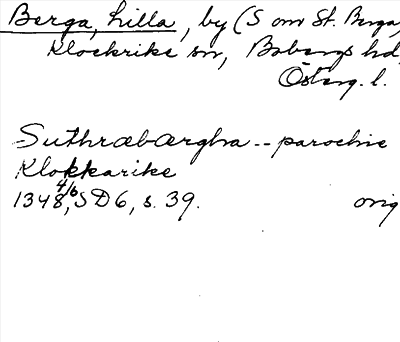 Berga, lilla, by (S om St. Berga,
Klockrike sn, Bobergs hd,
Österg. l.
Suthræbærgha -- parochie
Klokkarike
1348 4/6, SD6, s. 39. orig